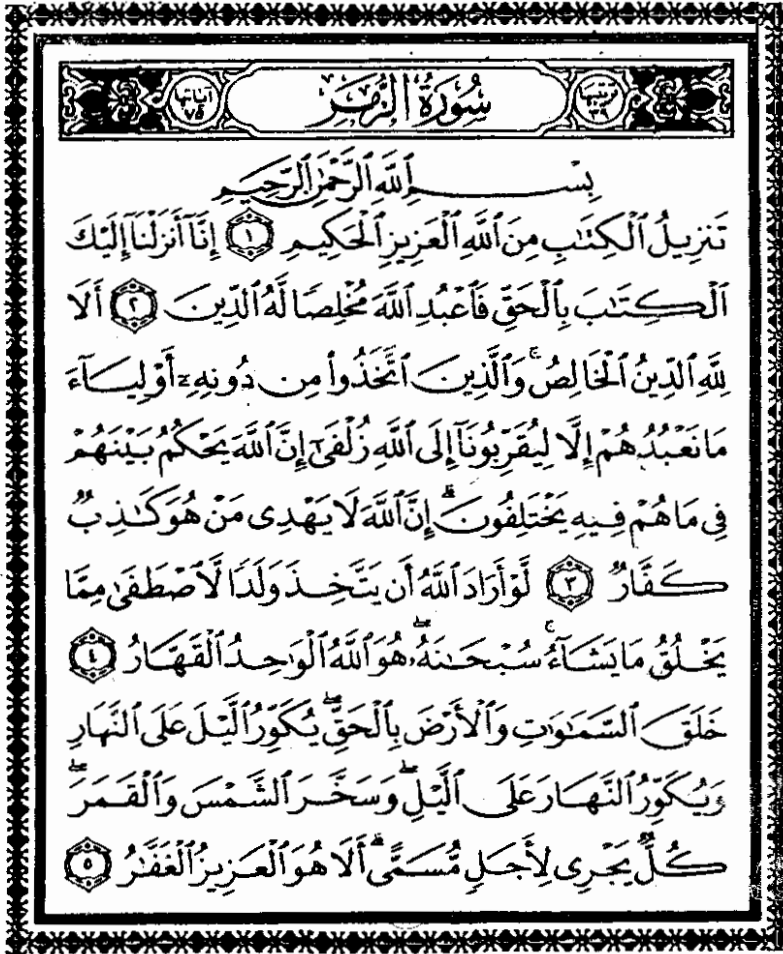 ترتيبها ٣٩ سُورَةُ الزُّمَرِ آياتها ٧٥
بِسْمِ ٱللَّهِ ٱلرَّحْمَٰنِ ٱلرَّحِيمِ
تَنزِيلُ ٱلْكِتَٰبِ مِنَ ٱللَّهِ ٱلْعَزِيزِ ٱلْحَكِيمِ ١ إِنَّآ أَنزَلْنَآ إِلَيْكَ
ٱلْكِتَٰبَ بِٱلْحَقِّ فَٱعْبُدِ ٱللَّهَ مُخْلِصًا لَّهُ ٱلدِّينَ ٢ أَلَا
لِلَّهِ ٱلدِّينُ ٱلْخَالِصُ ۚ وَٱلَّذِينَ ٱتَّخَذُوا۟ مِن دُونِهِۦٓ أَوْلِيَآءَ
مَا نَعْبُدُهُمْ إِلَّا لِيُقَرِّبُونَآ إِلَى ٱللَّهِ زُلْفَىٰٓ إِنَّ ٱللَّهَ يَحْكُمُ بَيْنَهُمْ
فِى مَا هُمْ فِيهِ يَخْتَلِفُونَ ۗ إِنَّ ٱللَّهَ لَا يَهْدِى مَنْ هُوَ كَٰذِبٌ
كَفَّارٌ ٣ لَّوْ أَرَادَ ٱللَّهُ أَن يَتَّخِذَ وَلَدًا لَّٱصْطَفَىٰ مِمَّا
يَخْلُقُ مَا يَشَآءُ ۚ سُبْحَٰنَهُۥ ۖ هُوَ ٱللَّهُ ٱلْوَٰحِدُ ٱلْقَهَّارُ ٤
خَلَقَ ٱلسَّمَٰوَٰتِ وَٱلْأَرْضَ بِٱلْحَقِّ ۖ يُكَوِّرُ ٱلَّيْلَ عَلَى ٱلنَّهَارِ
وَيُكَوِّرُ ٱلنَّهَارَ عَلَى ٱلَّيْلِ ۖ وَسَخَّرَ ٱلشَّمْسَ وَٱلْقَمَرَ ۖ
كُلٌّ يَجْرِى لِأَجَلٍ مُّسَمًّى ۗ أَلَا هُوَ ٱلْعَزِيزُ ٱلْغَفَّٰرُ ٥